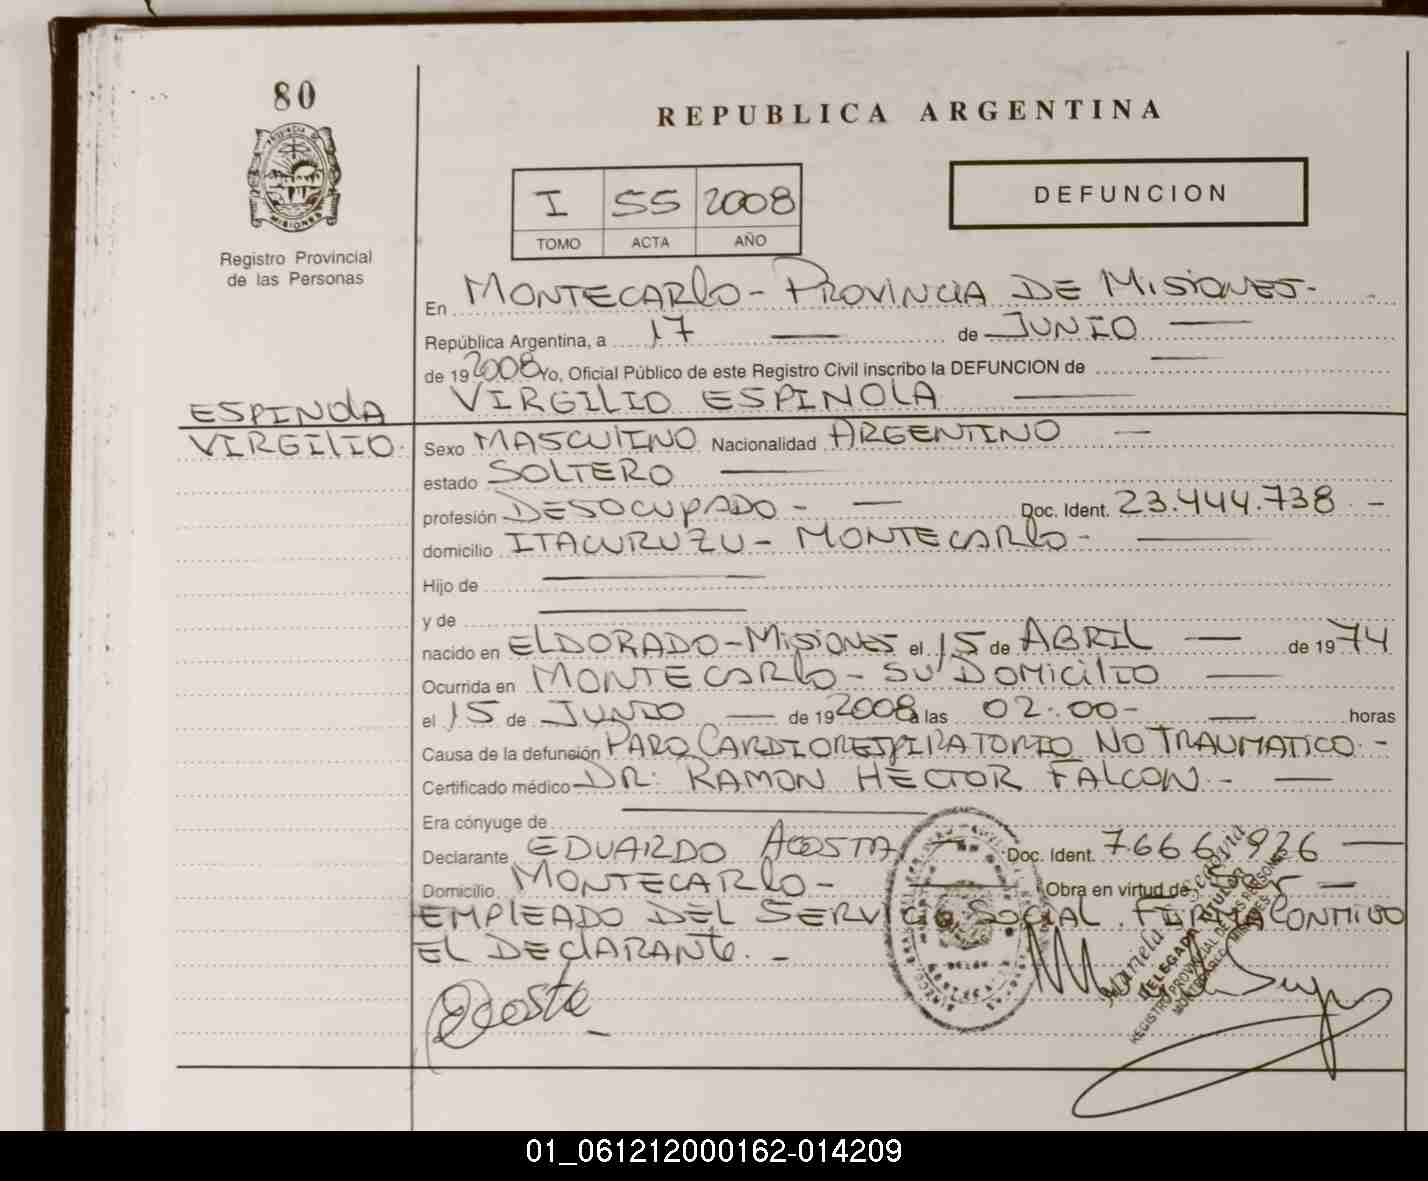 80
REPUBLICA ARGENTINA
PROVINCIA DE
MISIONES
Registro Provincial
de las Personas
I 55 2008
TOMO ACTA AÑO
DEFUNCION
En MONTECARLO - PROVINCIA DE MISIONES.-
República Argentina, a 17 — de JUNIO —
de 19 2008 Yo, Oficial Público de este Registro Civil inscribo la DEFUNCION de —
VIRGILIO ESPINOLA —
ESPINOLA
VIRGILIO.
Sexo MASCULINO Nacionalidad ARGENTINO —
estado SOLTERO —
profesión DESOCUPADO - — Doc. Ident. 23.444.738 -
domicilio ITACURUZU - MONTECARLO - —
Hijo de —
y de —
nacido en ELDORADO - MISIONES el 15 de ABRIL — de 1974
Ocurrida en MONTECARLO - SU DOMICILIO —
el 15 de JUNIO — de 19 2008 a las 02:00 - — horas
Causa de la defunción PARO CARDIORESPIRATORIO NO TRAUMATICO.-
Certificado médico DR. RAMON HECTOR FALCON.- —
Era cónyuge de —
Declarante EDUARDO ACOSTA — Doc. Ident. 7666926 —
Domicilio MONTECARLO - — Obra en virtud de SER —
EMPLEADO DEL SERVICIO SOCIAL. FIRMA CONMIGO
EL DECLARANTE. -
Acosta
Mariela Segovia
DELEGADA TITULAR
REGISTRO PROVINCIAL DE LAS PERSONAS
MONTECARLO MISIONES
01_061212000162-014209